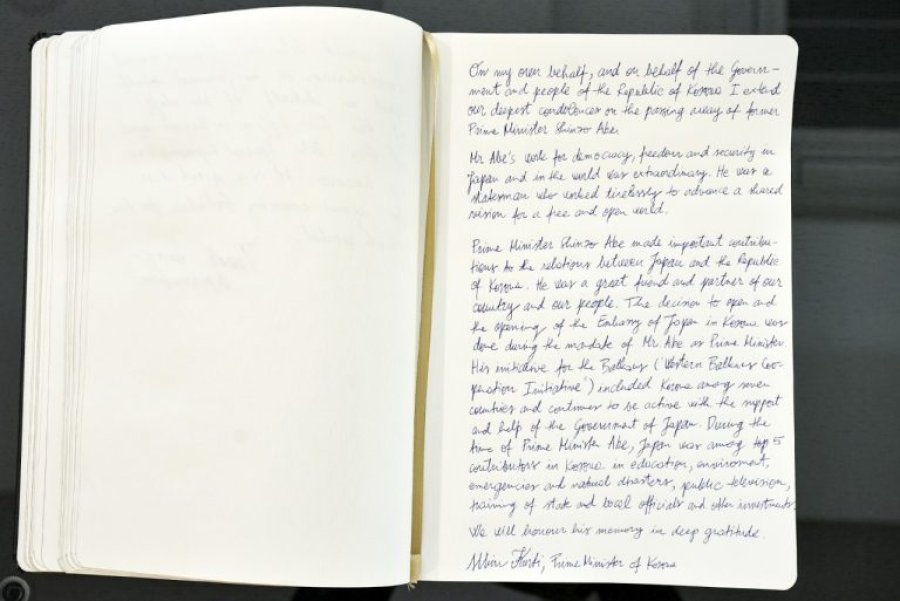 On my own behalf, and on behalf of the Govern-
ment and people of the Republic of Kosova I extend
our deepest condolences on the passing away of former
Prime Minister Shinzo Abe.
Mr Abe's work for democracy, freedom and security in
Japan and in the world was extraordinary. He was a
statesman who worked tirelessly to advance a shared
vision for a free and open world.
Prime Minister Shinzo Abe made important contribu-
tions to the relations between Japan and the Republic
of Kosova. He was a great friend and partner of our
country and our people. The decision to open and
the opening of the Embassy of Japan in Kosova was
done during the mandate of Mr Abe as Prime Minister.
His initiative for the Balkans ("Western Balkans Coo-
peration Initiative") included Kosova among seven
countries and continues to be active with the support
and help of the Government of Japan. During the
time of Prime Minister Abe, Japan was among top 5
contributors in Kosova in education, enviroment,
emergencies and natural disasters, public television,
training of state and local officials and other investments.
We will honour his memory in deep gratitude.
Albin Kurti, Prime Minister of Kosova